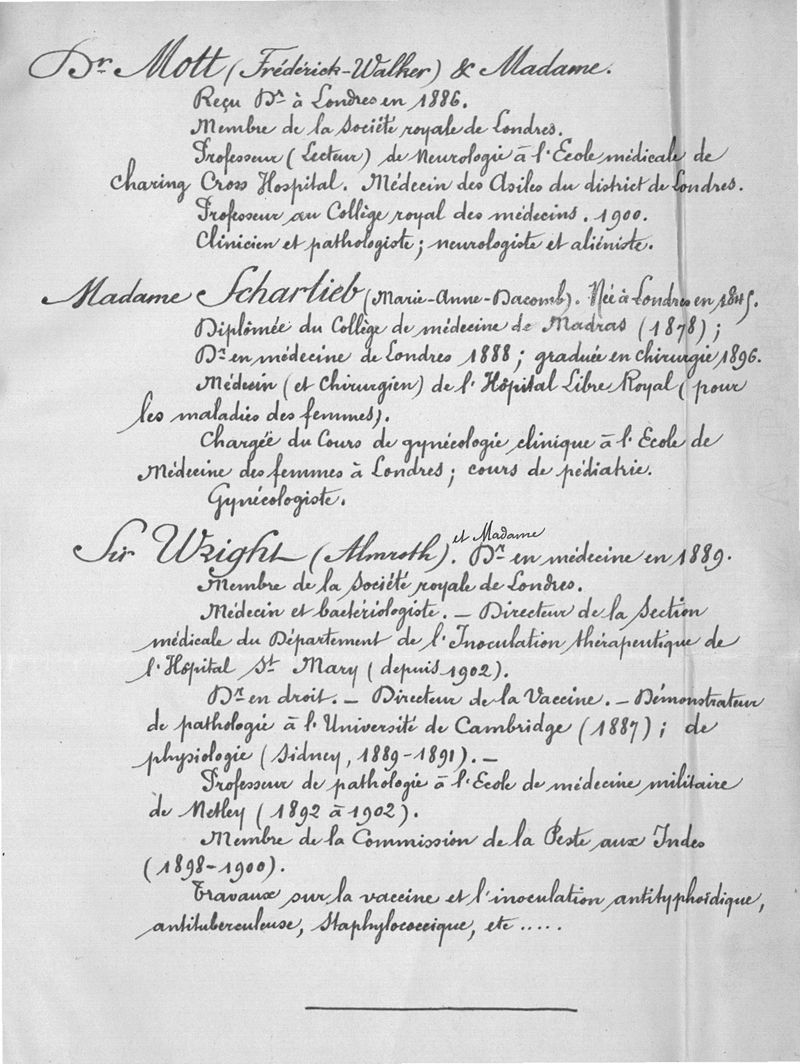 Dr Mott (Frédérick-Walker) & Madame.
Reçu Dr à Londres en 1886.
Membre de la Société royale de Londres.
Professeur (Lecteur) de Neurologie à l'Ecole médicale de
Charing Cross Hospital. Médecin des Asiles du district de Londres.
Professeur au Collège royal des médecins. 1900.
Clinicien et pathologiste; neurologiste et aliéniste.
Madame Scharlieb (Marie-Anne-Dacomb). Née à Londres en 1845.
Diplômée du Collège de médecine de Madras (1878);
Dr en médecine de Londres 1888; graduée en chirurgie 1896.
Médecin (et Chirurgien) de l'Hôpital Libre Royal (pour
les maladies des femmes).
Chargée du Cours de gynécologie clinique à l'Ecole de
Médecine des femmes à Londres; cours de pédiatrie.
Gynécologiste.
Sir Wright (Almroth). et Madame Dr en médecine en 1889.
Membre de la Société royale de Londres.
Médecin et bactériologiste. — Directeur de la Section
médicale du Département de l'Inoculation thérapeutique de
l'Hôpital St Mary (depuis 1902).
Dr en droit. — Directeur de la Vaccine. — Démonstrateur
de pathologie à l'Université de Cambridge (1887); de
physiologie (Sidney, 1889-1891). —
Professeur de pathologie à l'Ecole de médecine militaire
de Netley (1892 à 1902).
Membre de la Commission de la Peste aux Indes
(1898-1900).
Travaux sur la vaccine et l'inoculation antityphoïdique,
antituberculeuse, Staphylococcique, etc .....